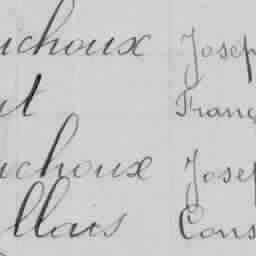 uchoux Josep
ut Franç
uchoux Josep
llais Cons